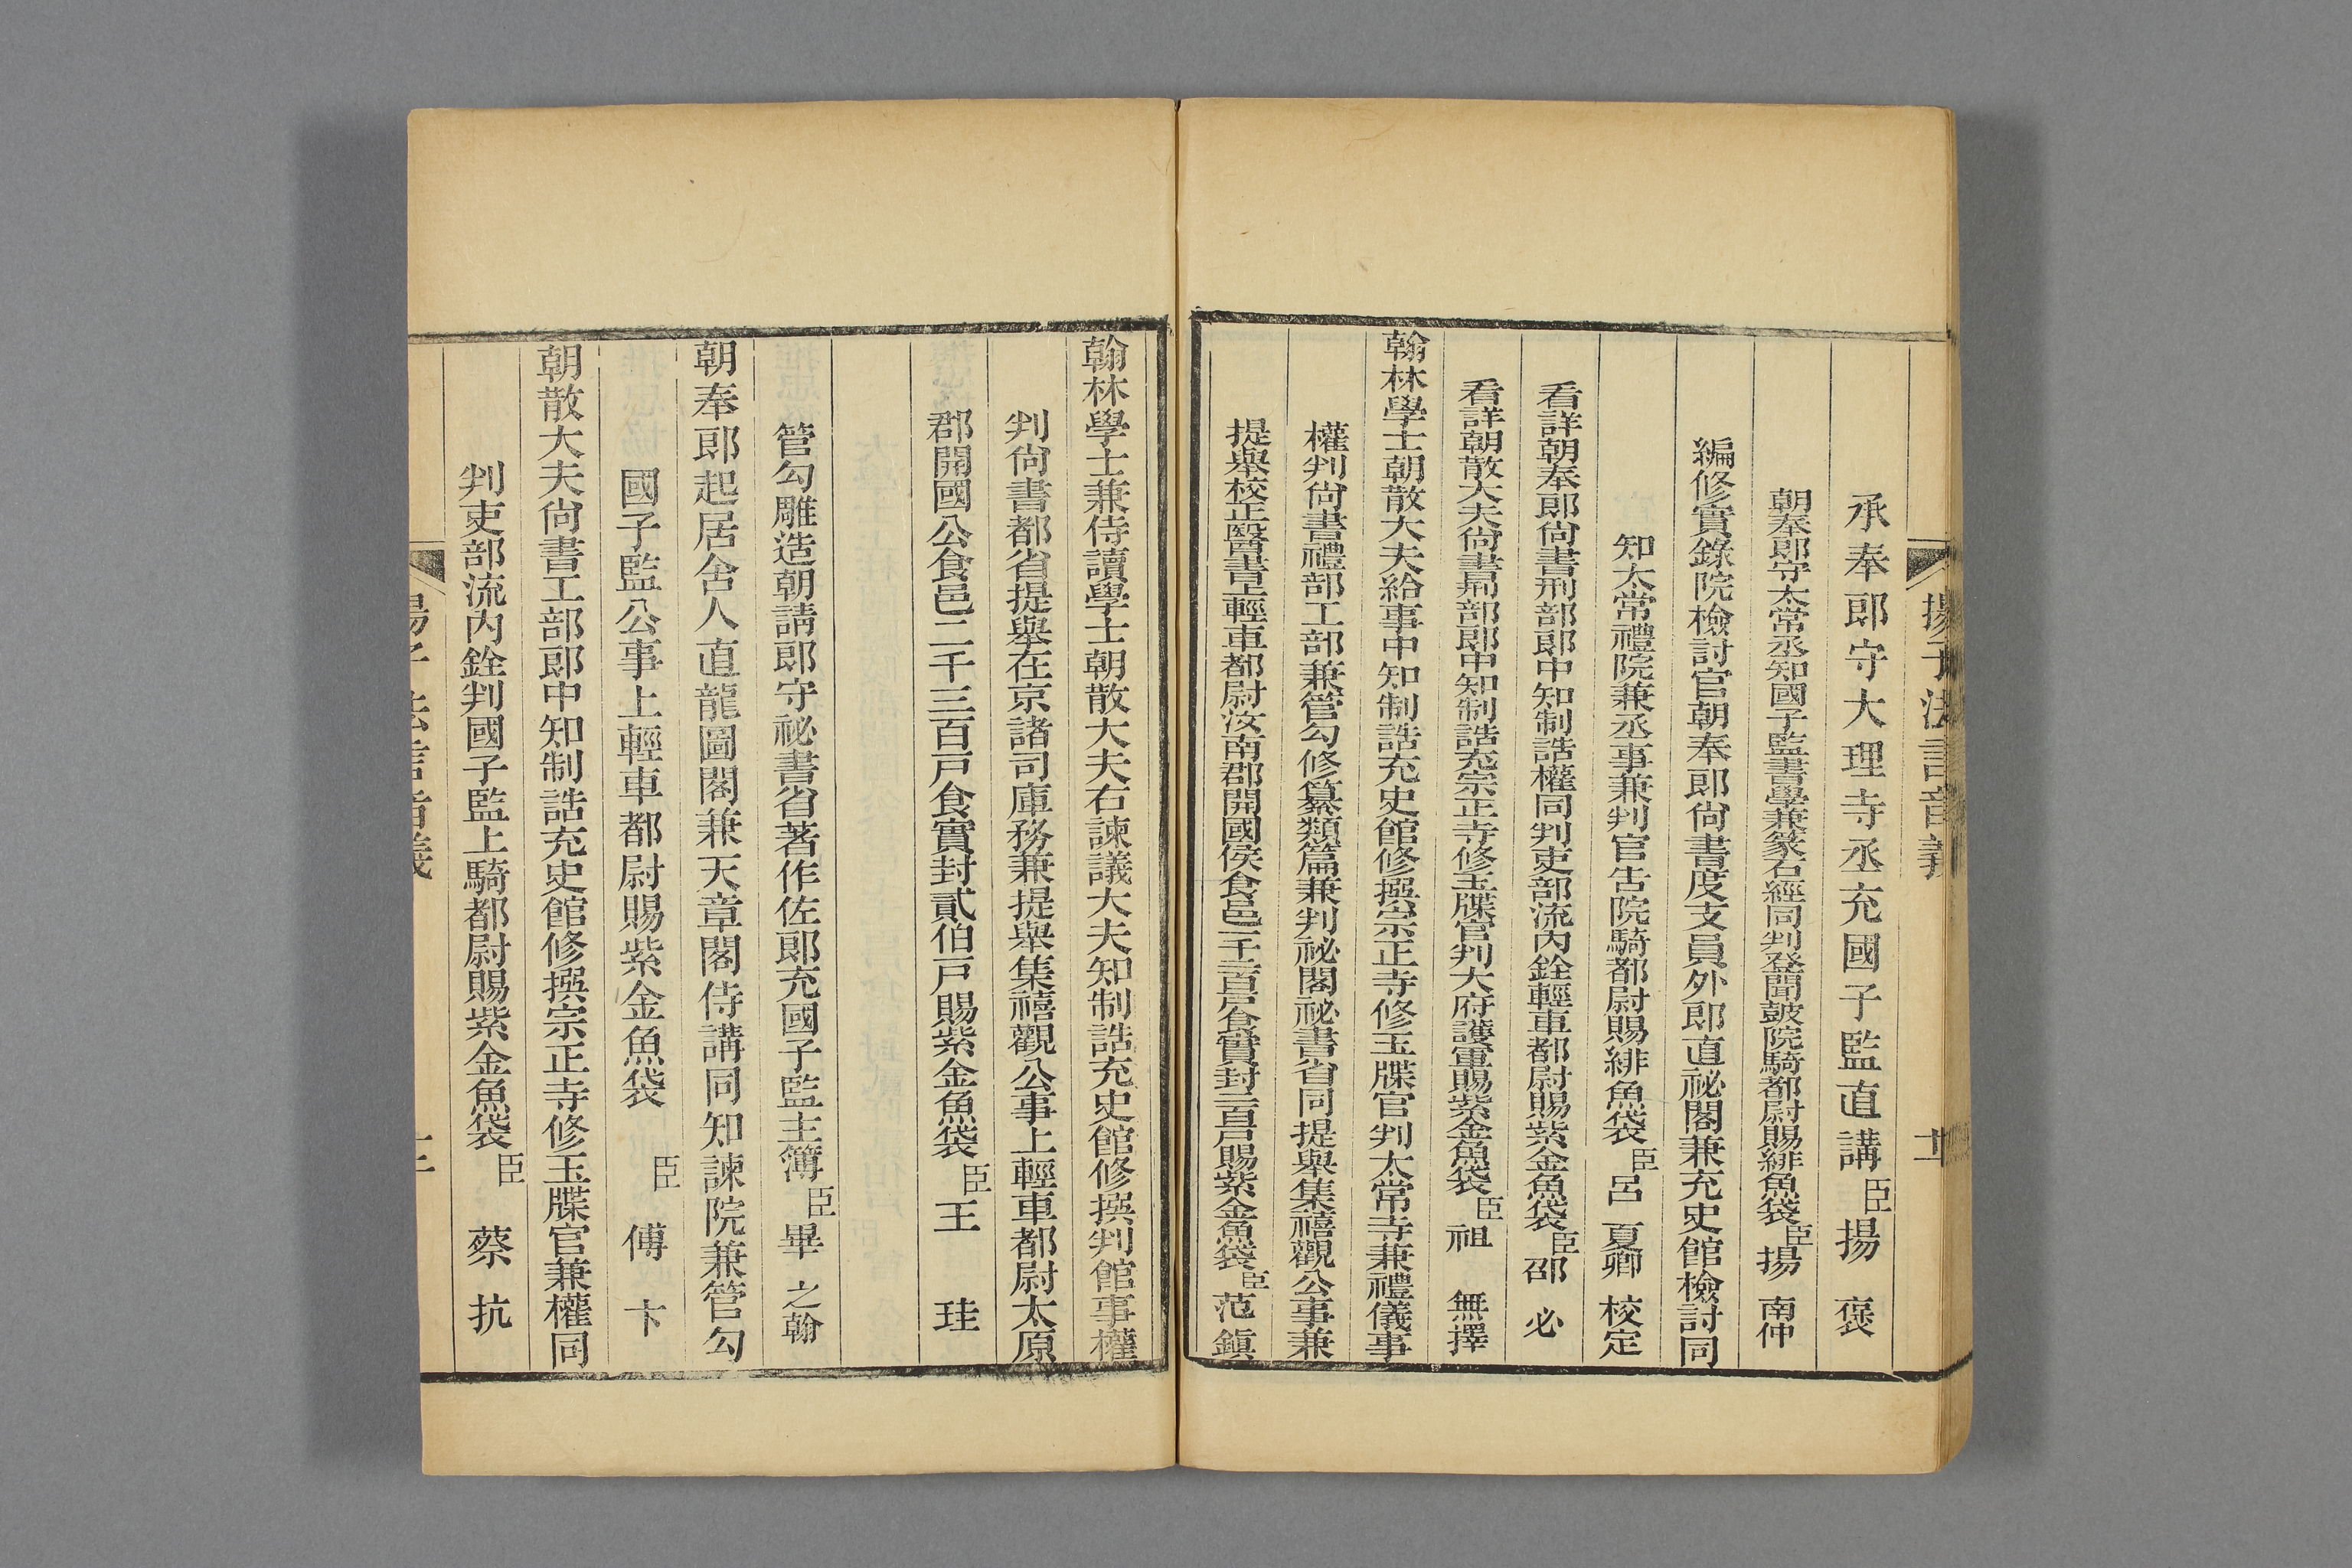 揚子法言音義
十一
承奉郎守大理寺丞充國子監直講臣揚褒
朝奉郎守太常丞知國子監書學兼篆石經同判登聞鼓院騎都尉賜緋魚袋臣揚南仲
編修實錄院檢討官朝奉郎尚書度支員外郎直祕閣兼充史館檢討同
知太常禮院兼丞事兼判官告院騎都尉賜緋魚袋臣呂夏卿校定
看詳朝奉郎尚書刑部郎中知制誥權同判吏部流內銓輕車都尉賜紫金魚袋臣邵必
看詳朝散大夫尚書吊部郎中知制誥充宗正寺修玉牒官判大府護軍賜紫金魚袋臣祖無擇
翰林學士朝散大夫給事中知制誥充史館修撰宗正寺修玉牒官判太常寺兼禮儀事
權判尚書禮部工部兼管勾修纂類篇兼判祕閣祕書省同提舉集禧觀公事兼
提舉校正醫書上輕車都尉汝南郡開國侯食邑一千三百戶食實封三百戶賜紫金魚袋臣范鎮
翰林學士兼侍讀學士朝散大夫右諫議大夫知制誥充史館修撰判館事權
判尚書都省提舉在京諸司庫務兼提舉集禧觀公事上輕車都尉太原
郡開國公食邑二千三百戶食實封貳伯戶賜紫金魚袋臣王珪
管勾雕造朝請郎守祕書省著作佐郎充國子監主簿臣畢之翰
朝奉郎起居舍人直龍圖閣兼天章閣侍講同知諫院兼管勾
國子監公事上輕車都尉賜紫金魚袋臣傅卞
朝散大夫尚書工部郎中知制誥充史館修撰宗正寺修玉牒官兼權同
判吏部流內銓判國子監上騎都尉賜紫金魚袋臣蔡抗
揚子法言音義